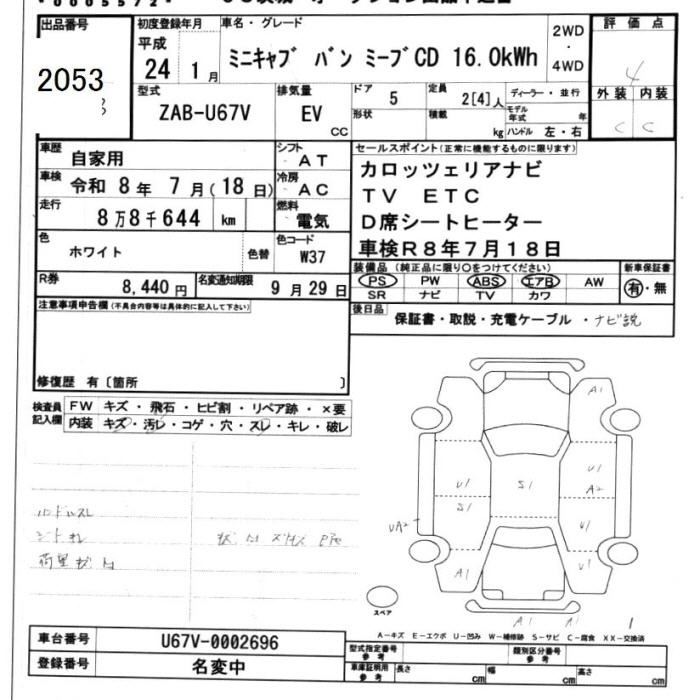 出品番号
2053
初度登録年月
平成
24 1月
車名・グレード
ミニキャブ バン ミーブCD 16.0kWh
2WD
・
4WD
評価点
4
外装 内装
C C
型式
ZAB-U67V
排気量
EV
CC
ドア 5
形状
定員 2[4]人
積載 kg
ディーラー・並行
モデル年式 年
ハンドル 左・右
車歴 自家用
車検 令和 8年 7月(18日)
走行 8万8千644 km
色 ホワイト 色替
シフト AT
冷房 AC
燃料 電気
色コード W37
R券 8,440円
名変通知期限 9月29日
セールスポイント(正常に機能するものに限ります)
カロッツェリアナビ
TV ETC
D席シートヒーター
車検R8年7月18日
装備品(純正品に限り○をつけてください)
PS PW ABS エアB AW
SR ナビ TV カワ
新車保証書
有・無
後日品 保証書・取説・充電ケーブル・ナビ説
注意事項申告欄(不具合内容等は具体的に記入して下さい)
修復歴 有〔箇所 〕
検査員記入欄
FW キズ・飛石・ヒビ割・リペア跡・×要
内装 キズ・汚レ・コゲ・穴・スレ・キレ・破レ
ハンドルスレ
A1
U1 S1 U1
A2
S1
UA2 U1
A1 U1
スペア
A1 A1
A-キズ E-エクボ U-凹み W-補修跡 S-サビ C-腐食 XX-交換済
車台番号 U67V-0002696
登録番号 名変中
型式指定番号 参考
類別区分番号 参考
車庫証明用 参考
長さ cm 幅 cm 高さ cm